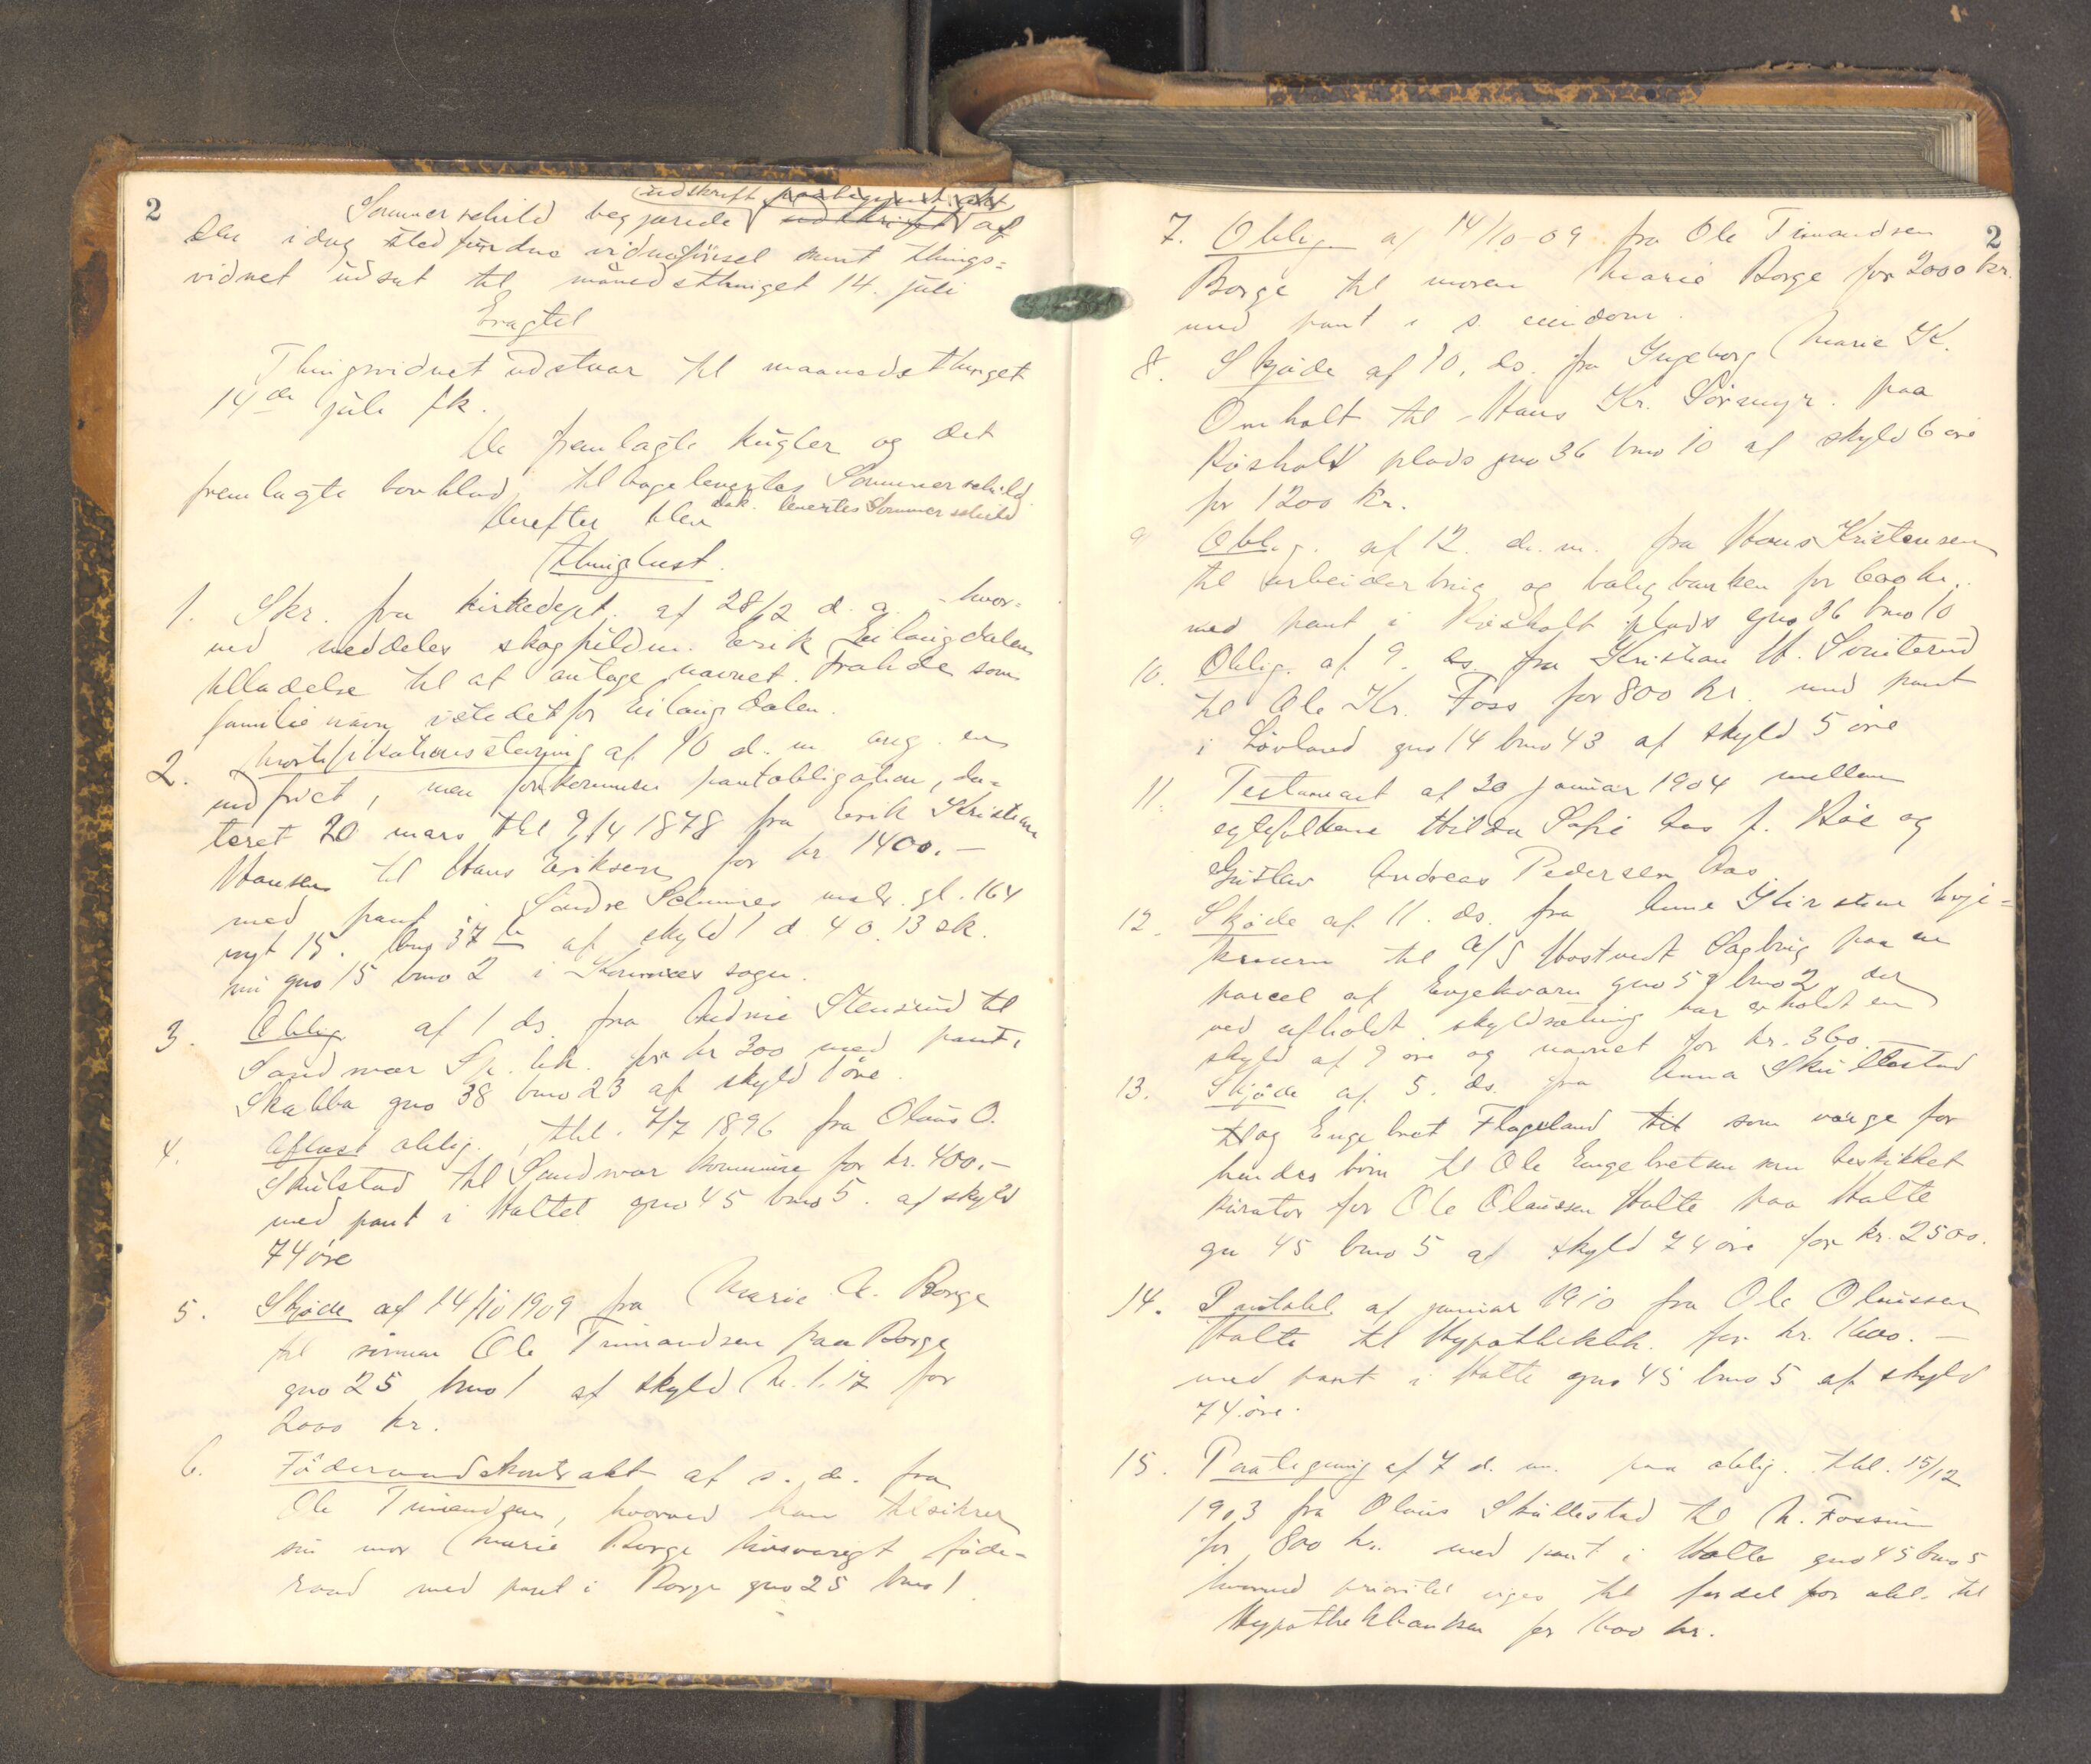 2
udskrift paabegjært strax
Sommerschild begjærede udskrift af
den idag stedfundne vidneførsel samt things=
vidnet udsat til månedsthinget 14. juli
Eragtet
Thingsvidnet udstaar til maanedsthinget
14de juli fk.
De fremlagte kugler og det
fremlagte tilbageleveredes Sommerschild
dok. leveredes Sommerschild
Derefter blev
thinglæst.
1. Skr. fra kirkedept. af 28/2 d. a. - hvor=
ved meddeles Erik Eilangdalen
tilladelse til at antage navnet som
familienavn istedetfor Eilangdalen.
2. Mortifikationsstævning af 10 d. m ang. en
indfriet, men forkommen pantobligation, da=
teret 20 mars thl 9/4 1878 fra Erik Kristian
Hansen til Hans Eriksen for kr. 1400.-
med pant i Søndre matr. gl. 164
nyt 15. bno 37 af skyld 1 d 4 o. 13 sk.
nu gno 15 bno 2 i Komnæs sogn.
3. Oblig. af 1 ds. fra Stensrud til
Sandsvær Sp. bk. for kr 300 med pant i
Skabba gno 38 bno 23 af skyld 1 øre.
4. Aflæst oblig. thl. 7/7 1896 fra Olaus O.
Skulstad til Sandsvær kommune for kr. 400.-
med pant i Haltet gno 45 bno 5. af skyld
74 øre
5. Skjøde af 14/10 1909 fra Marie A. Borge
til sønnen Ole Timandsen paa Borge
gno 25 bno 1 af skyld M. 1.17 for
2000 kr.
6. Føderaadskontrakt af s. d. fra
Ole Timandsen, hvorved han tilsikrer
sin mor Marie Borge livsvarigt føde-
raad med pant i Borge gno 25 bno 1.
2
7. Oblig af 14/10-09 fra Ole Timandsen
Borge til moren Marie Borge for 2000 kr.
med pant i s. eiendom.
8. Skjøde af 10. ds. fra Ingeborg Marie K.
Omholt til Hans Kr. Sørmyr. paa
Røsholt plads gno 36 bno 10 af skyld 6 øre
for 1200 kr.
9 Oblig. af 12. d. m. fra Hans Kristensen
til arbeiderbrug og boligbanken for 600 kr.
med pant i Røsholt plads gno 36 bno 10
10. Oblig. af 9. ds. fra Kristian H.
til Ole Kr. Foss for 800 kr. med pant
i Løvland gno 14 bno 43 af skyld 5 øre
11. Testament af 30 januar 1904 mellem
egtefolkene Hilda Sofie Aas f. og
Gustav Andreas Pedersen Aas
12. Skjøde af 11. ds. fra Anne Kirstine
til A/S Hostvedt Sagbrug paa en
parcel af Engekværn gno 59 bno 2, der
ved afholdt skyldsætning har erholdt en
skyld af 9 øre og navnet for kr. 360.-
13. Skjøde af 5. ds. fra Anna Skullestad
og Engebret Flageland som værge for
hendes børn til Ole Engebretsen som beskikket
kurator for Ole Olaussen Halte paa Halte
gn 45 bno 5 af skyld 74 øre for kr. 2500.
14. Pantobl. af januar 1910 fra Ole Olaussen
Halte til Hypothekbk. for kr. 1600.-
med pant i Halte gno 45 bno 5 af skyld
74 øre.
15. Paategning af 7 d. m. paa oblig. thl. 15/12
1903 fra Olaus Skullestad til N. Fossum
for 800 kr. med pant i Halte gno 45 bno 5
hvorved prioritet viges til fordel for obl. til
Hypothekbanken for 1600 kr.